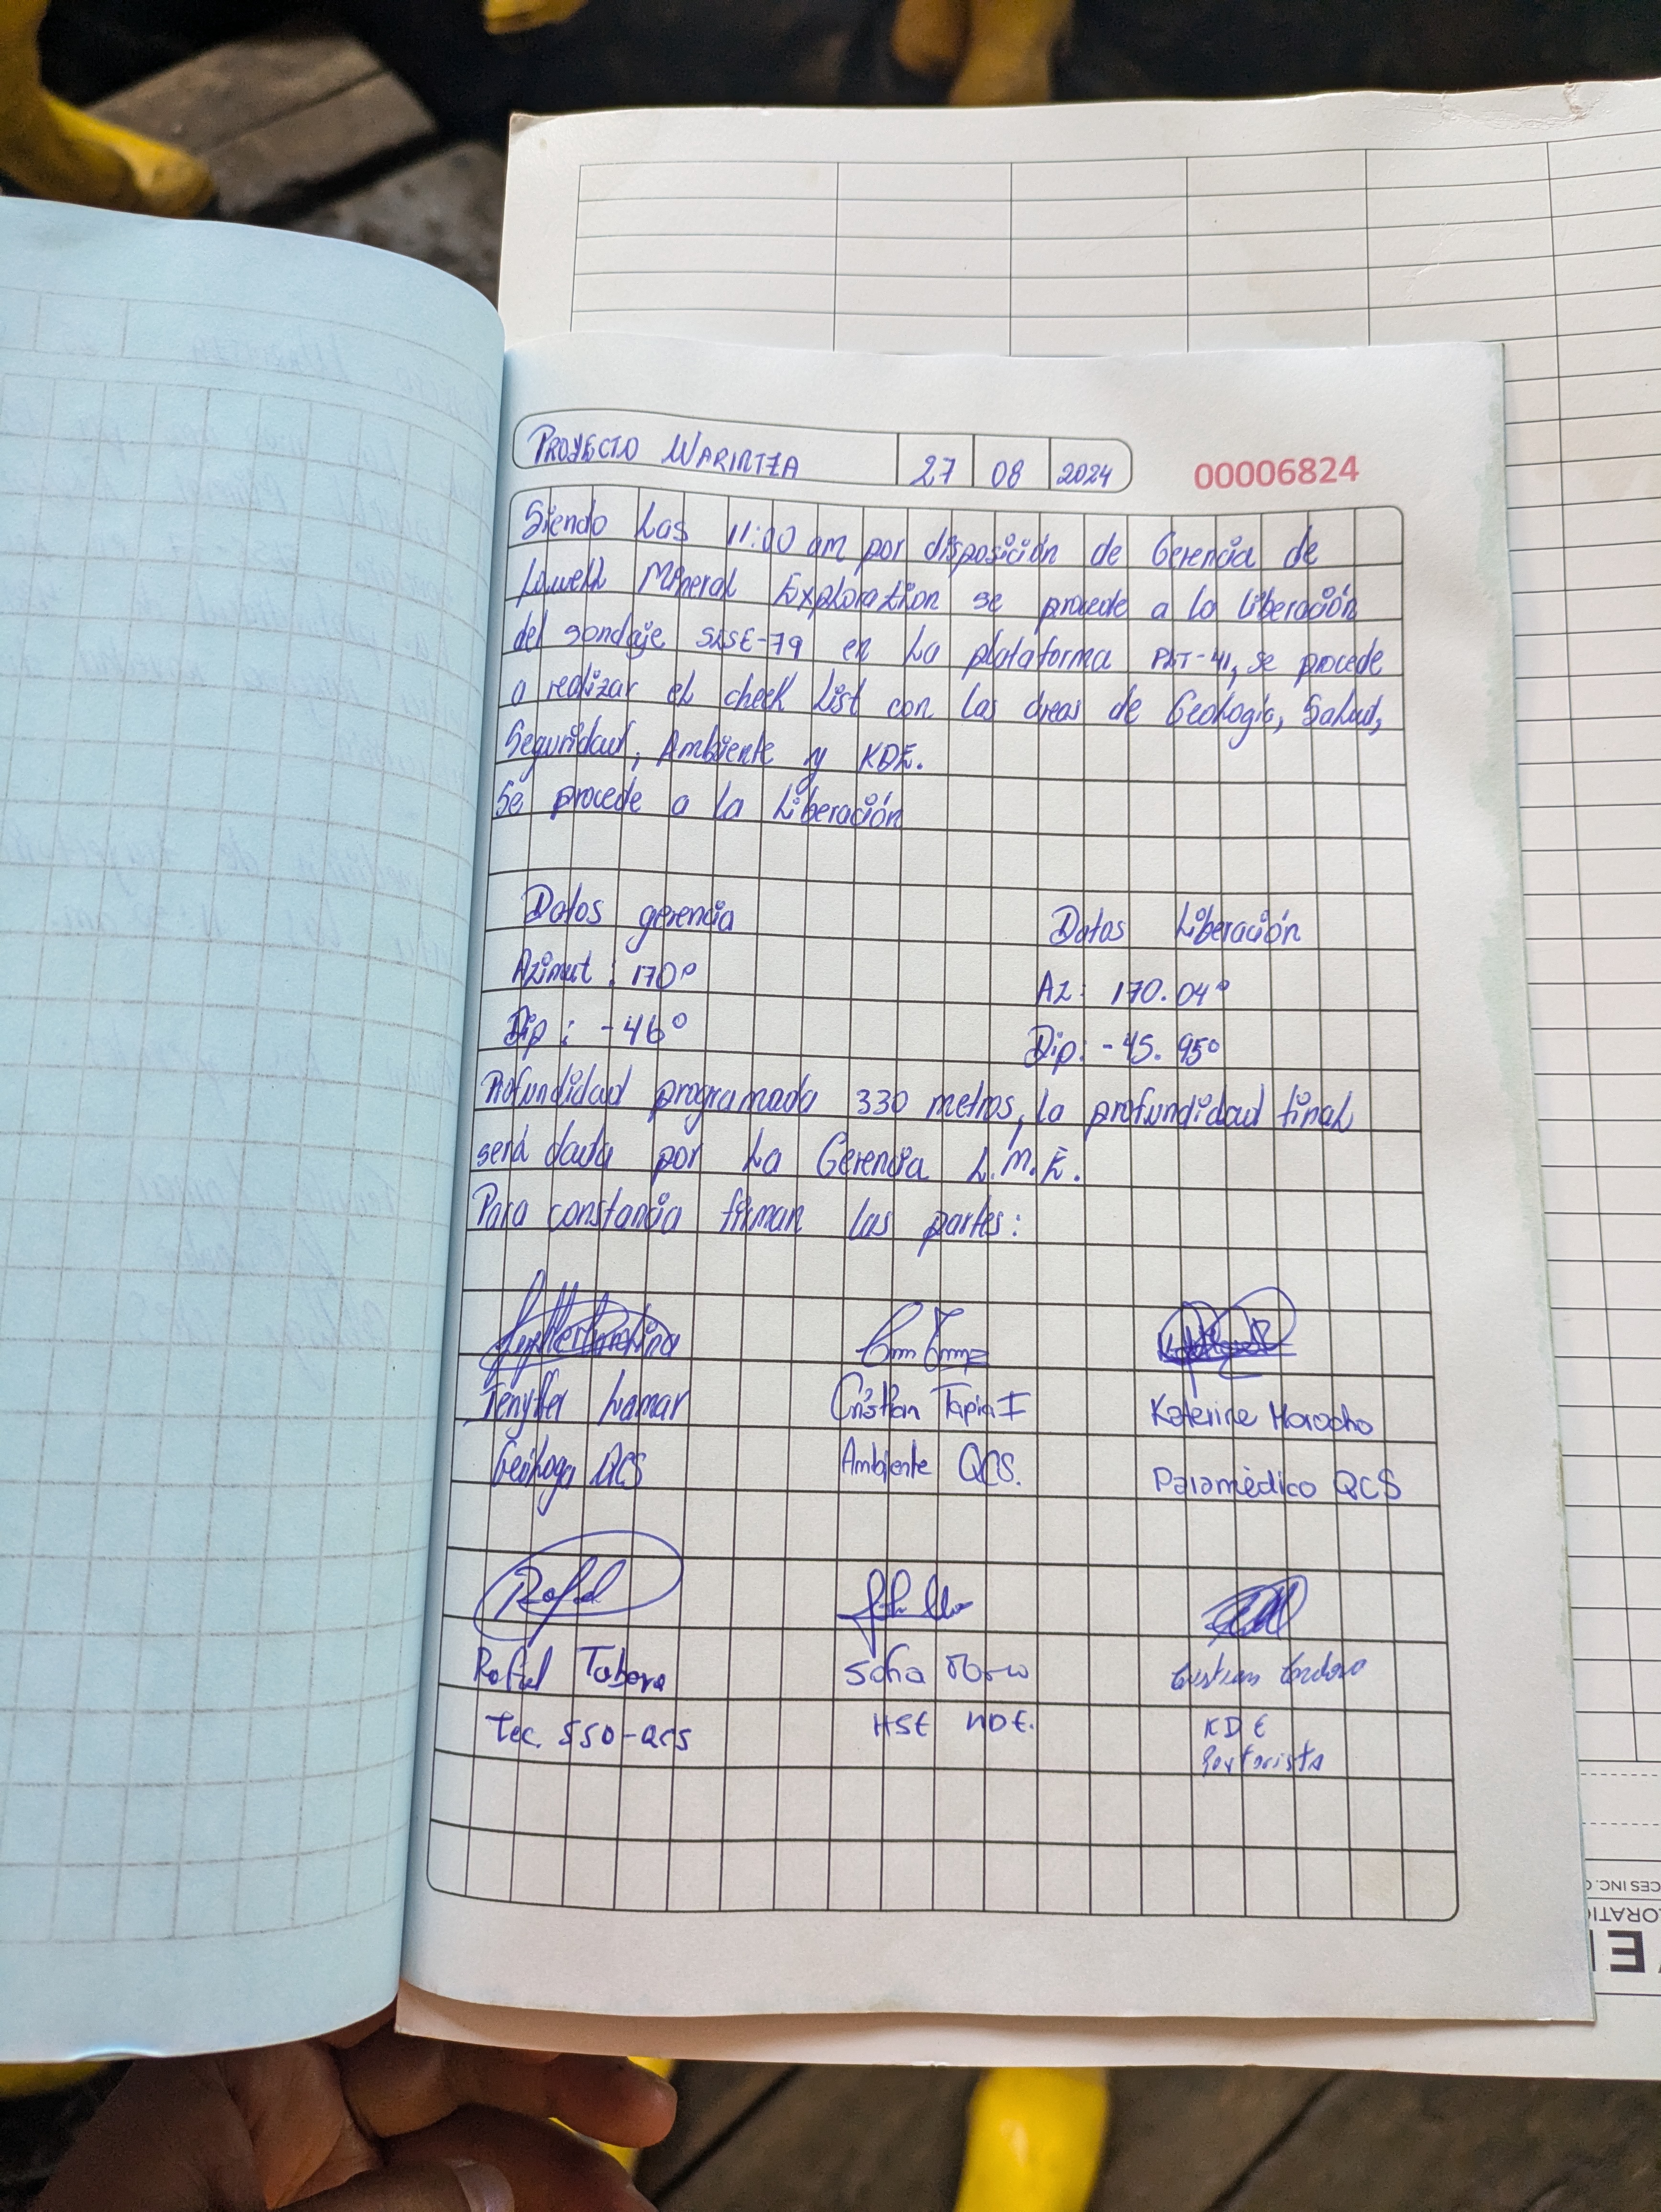 PROYECTO WARINTZA 27 08 2024 00006824
Siendo Las 11:00 am por disposición de Gerencia de
Lowell Mineral Exploration se procede a la liberación
del sondaje SLSE-79 en La plataforma PLT-41, se procede
a realizar el check List con las áreas de Geología, Salud,
Seguridad, Ambiente y KDE.
Se procede a la Liberación
Datos gerencia Datos Liberación
Azimut : 170° Az: 170.04°
Dip : -46° Dip: -45.95°
Profundidad programada 330 metros, la profundidad final
será dada por La Gerencia L.M.E.
Para constancia firman las partes:
Jenyffer Lamar Cristian Tapia I Katerine Morocho
Geóloga QCS Ambiente QCS. Paramédico QCS
Rafael Tabera Sofia
Tec. SSO-QCS HSE KDE.
KDE
CES INC.